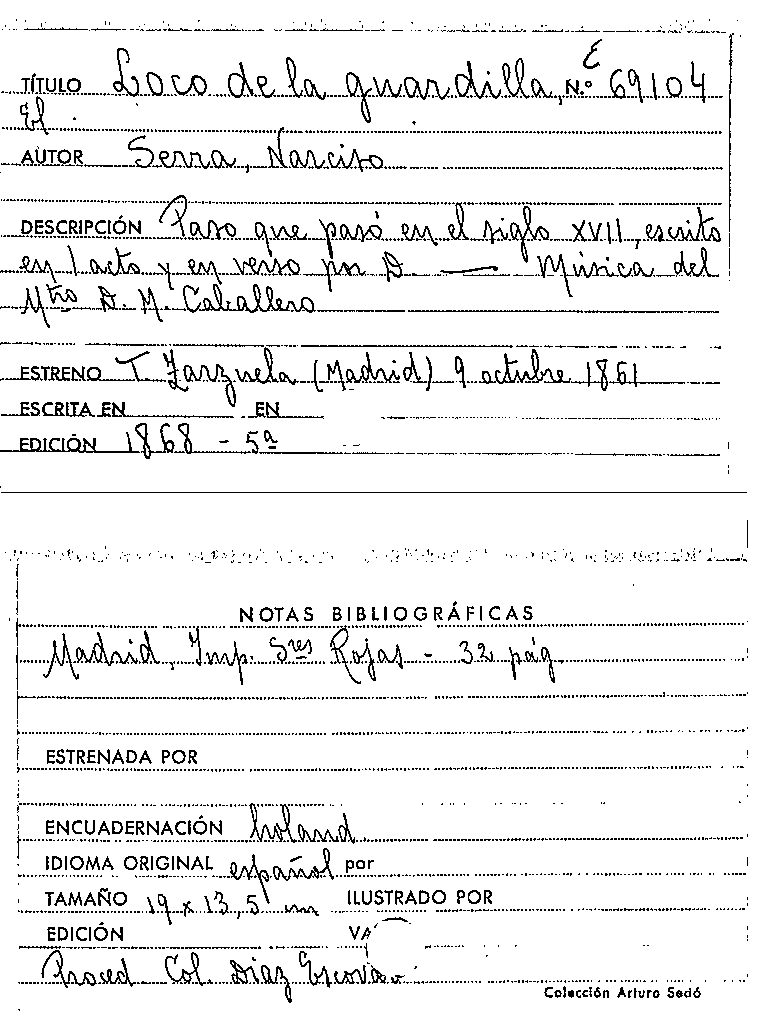 TÍTULO Loco de la guardilla, N.º E 69104
El
AUTOR Serra, Narciso
DESCRIPCIÓN Paso que pasó en el siglo XVII, escrito
en 1 acto y en verso por D. — Música del
Mtro D. M. Caballero
ESTRENO T. Zarzuela (Madrid) 9 octubre 1861
ESCRITA EN EN
EDICIÓN 1868 - 5ª
NOTAS BIBLIOGRÁFICAS
Madrid, Imp. Sres Rojas - 32 pág.
ESTRENADA POR
ENCUADERNACIÓN holand.
IDIOMA ORIGINAL español por
TAMAÑO 19 x 13,5 cm ILUSTRADO POR
EDICIÓN
Proced. Col. Díaz Escovar
Colección Arturo Sedó